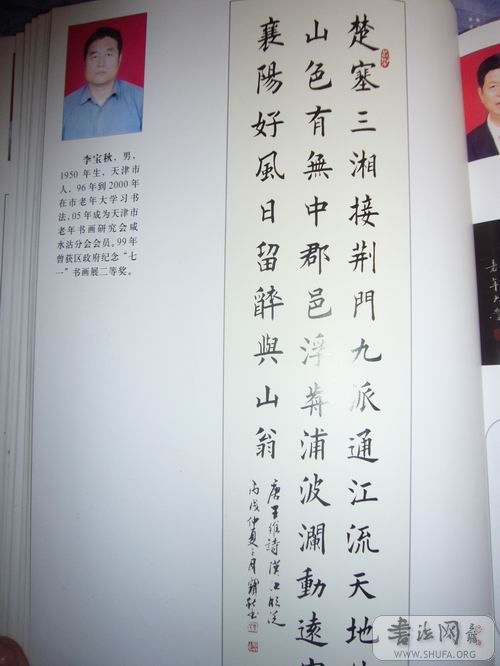 楚塞三湘接荆門九派通江流天地
山色有無中郡邑浮前浦波瀾動遠
襄陽好風日留醉與山翁
唐王維詩漢江臨泛
丙戌仲夏之月寶秋書
李宝秋，男，
1950 年生，天津市
人，96 年到 2000 年
在市老年大学习书
法，05 年成为天津市
老年书画研究会咸
水沽分会会员。99 年
曾获区政府纪念“七
一”书画展二等奖。
书法网
WWW.SHUFA.ORG